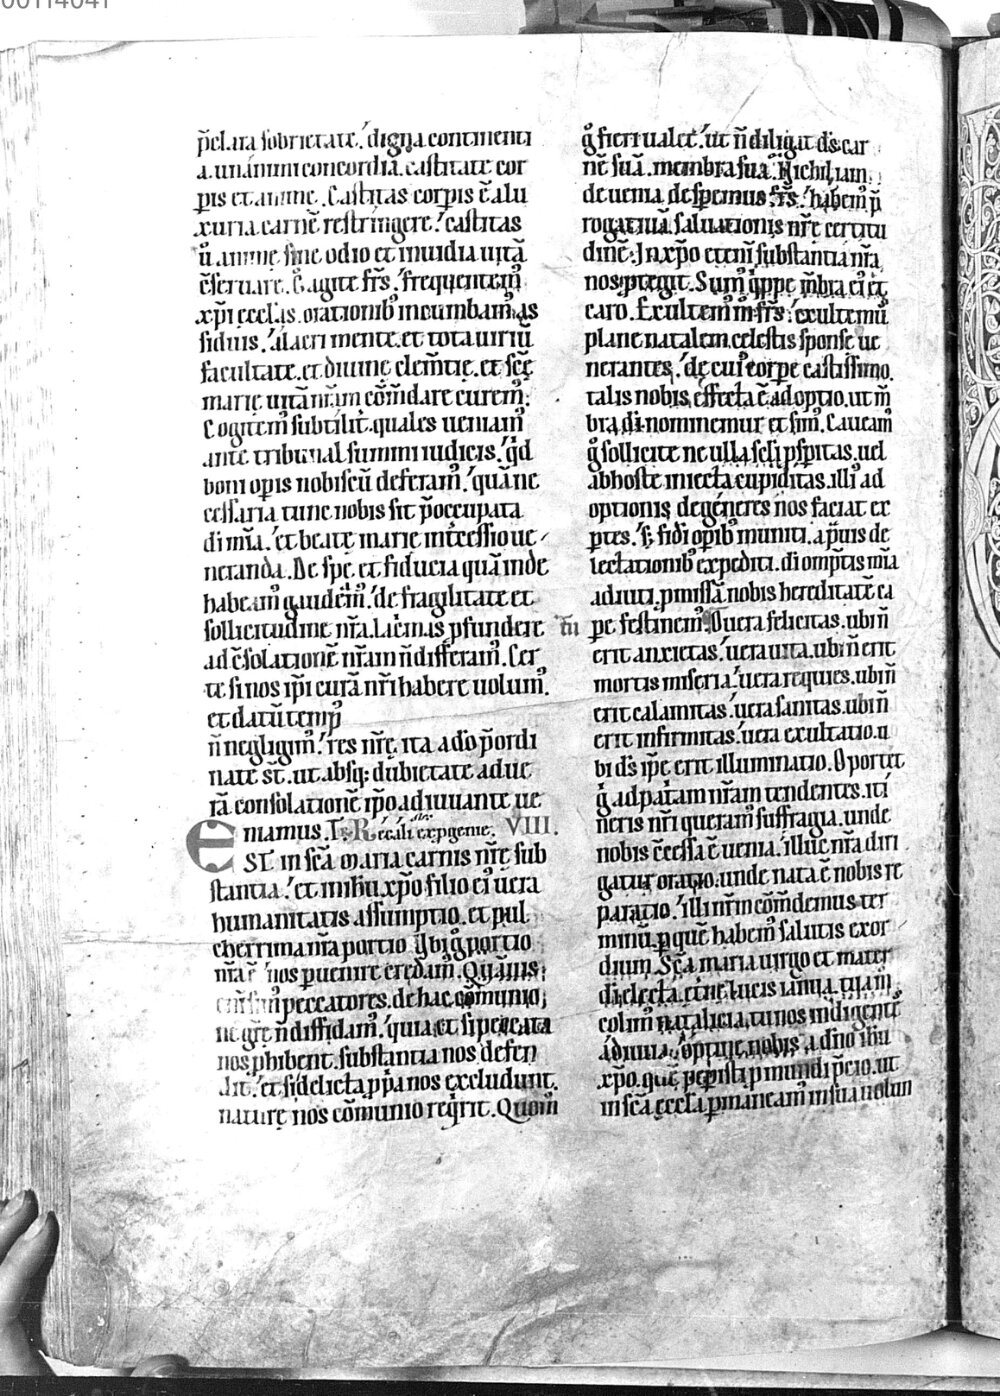 p̄clara sobrietate. digna continenti
a. unánimi concordia. castitate cor
pis et anime. Castitas corpis ē a lu
xuria carnē restringere. castitas
ū anime sine odio et inuidia uitā
cferuare. agite frs̄. frequentem
xp̄i ecclas. orationib incumbam as
siduis. alacri mente. et tota uiriū
facultate. et diuine clem̄tie. et sc̄ę
marie uitā nr̄am cōm̄dare curem.
Cogitem subtilit. quales ueniam
ante tribunal summi iudicis. qd
boni opis nobiscū deferam. quā ne
cessaria tunc nobis sit p̄occupata
di mia. et beate marie intcessio ue
neranda. De spe. et fiducia quā inde
habeam gaudem. de fragilitate et
sollicitudine nr̄a. lac̄mas pfundere
ad c̄solationē nr̄am n̄ differam. Cer
te si nos ip̄i curā nr̄i habere uolum.
et datū temp
n̄ negligim. res nr̄ę. ita a do p̄ordi
nate st̄. ut absq; dubietate ad ue
rā consolationē ip̄o adiuuante ue
niamus. VIII.
EST in sc̄a maria carnis nr̄ę sub
stantia. et in ihu xp̄o filio ei uera
humanitatis assumptio. et pul
cherrima nr̄a portio. Vbi g portio
nr̄a. nos puenire credam. Quāuis
enī sim peccatores. de hac cōmunio
ne gr̄ę n̄ diffidam. quia et si peccata
nos phibent. substantia nos defen
dit. et si delicta ppa nos excludunt.
naturę nos cōmunio reqrit. Quom
g fieri ualet. ut n̄ diligat ds̄ car
nē suā. membra sua. Nichil iam
de uenia despemus frs̄. habem p̄
rogatiuā saluationis nr̄ę certitu
dinē. In xp̄o etenī substantia nr̄a
nos ptegit. Sum qppe m̄bra ei et
caro. Exultem frs̄. exultemus
plane natalem celestis sponse ue
nerantes. de cui corpe castissimo.
talis nobis effecta ē adoptio. ut m̄
bra di nominemur et sim. Caueam
g sollicite ne ulla scli pspitas. uel
ab hoste iniecta cupiditas. illi ad
optionis degéneres nos faciat ex
ptes. s; fidi opib muniti. a p̄uis de
lectationib expediti. di omptis mia
adiuti. pmissā nobis hereditatē ca
pe festinem. O uera felicitas. ubi n̄
erit anxietas. uera uita. ubi n̄ erit
mortis miseria. uera requies. ubi n̄
erit calamitas. uera sanitas. ubi n̄
erit infirmitas. uera exultatio. u
bi ds̄ ip̄e erit illuminatio. Oportet
g ad patiam nr̄am tendentes. iti
neris nr̄i queram suffragia. unde
nobis c̄cessa ē uenia. illuc nr̄a diri
gatur oratio. unde nata ē nobis re
paratio. illi nr̄m cōm̄demus ter
minū. p quē habem salutis exor
dium. Sc̄a maria uirgo et mater
dilecta. etne lucis ianua. tuam
colim natalicia. tu nos indigem
Adiuua. optine nobis a dn̄o ihu
xp̄o. quē pepisti p mundi p̄cio. ut
in sc̄a ęccl̄a pmaneam in sua uolun